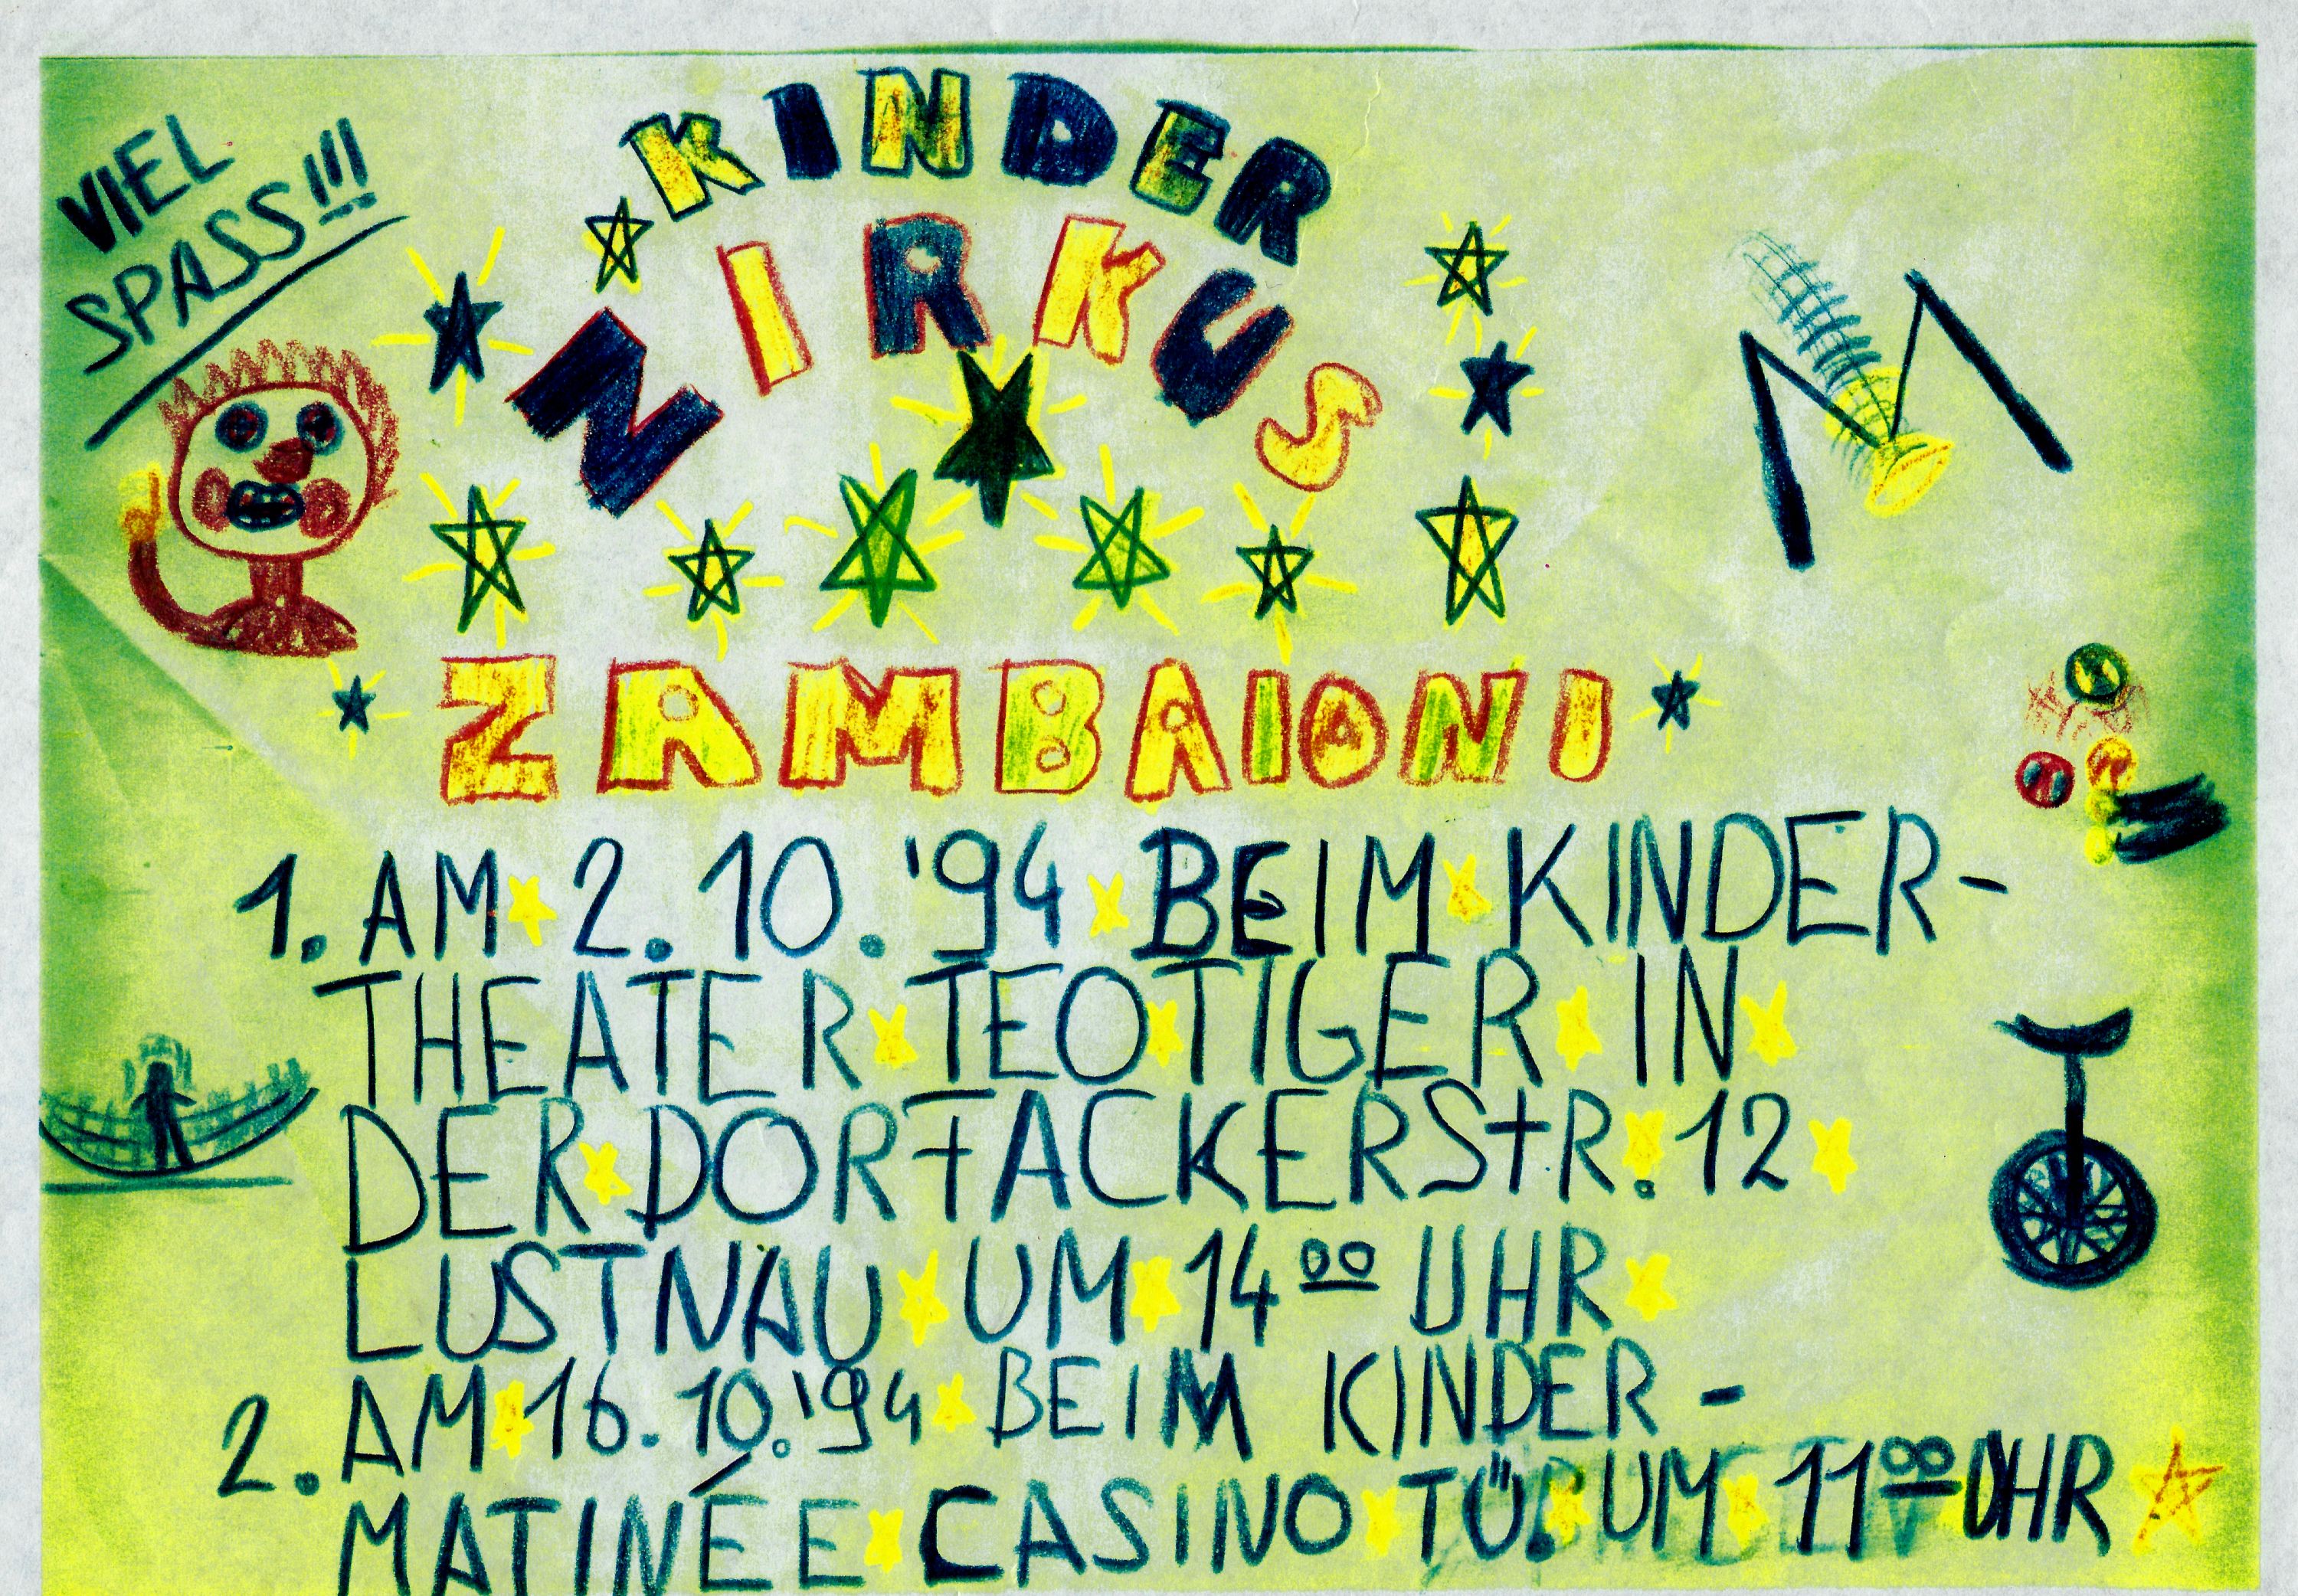 VIEL
SPASS!!!
KINDER
ZIRKUS
ZAMBAIONI
1. AM 2.10.'94 BEIM KINDER-
THEATER TEOTIGER IN
DER DORFACKERStR. 12
LUSTNAU UM 14⁰⁰ UHR
2. AM 16.10.'94 BEIM KINDER-
MATINÉE CASINO TÜ. UM 11⁰⁰ UHR